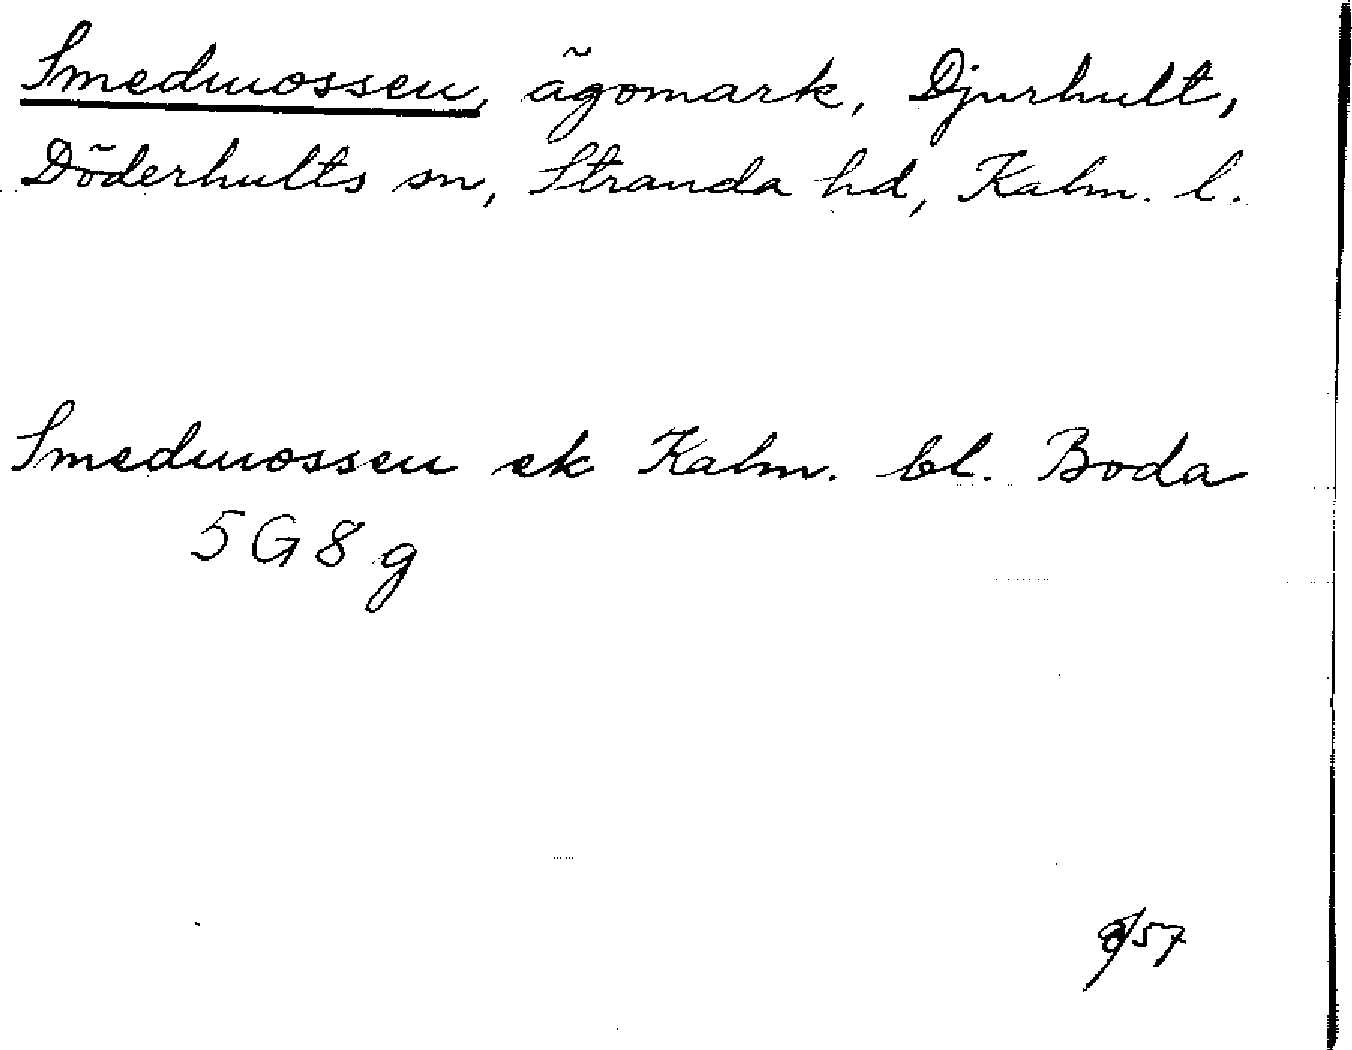 Smedmossen, ägomark, Djurhult,
Döderhults sn, Stranda hd, Kalm. l.
Smedmossen ek Kalm. bl. Boda
5G8g
/57